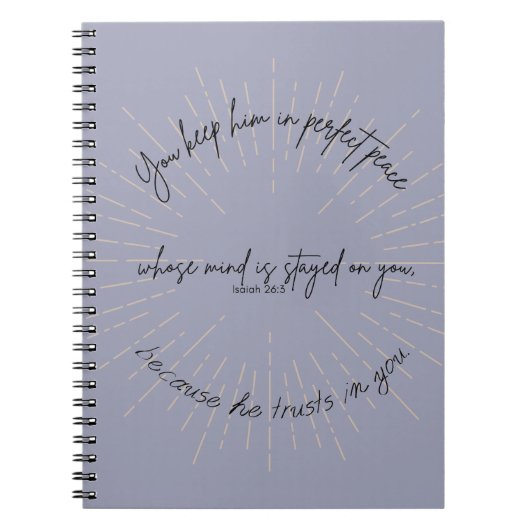 You keep him in perfect peace
whose mind is stayed on you,
Isaiah 26:3
because he trusts in you.